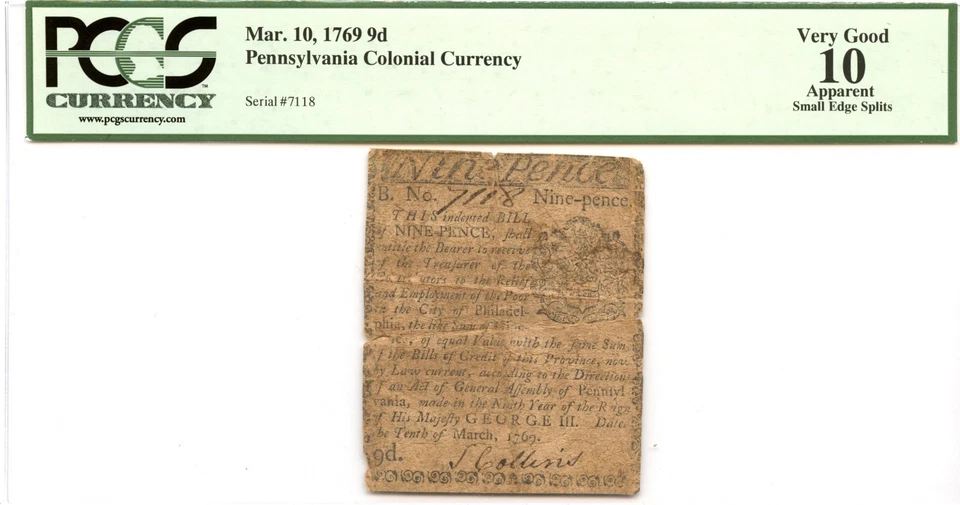 PCGS
CURRENCY
TM
www.pcgscurrency.com
Mar. 10, 1769 9d
Pennsylvania Colonial Currency
Serial #7118
Very Good
10
Apparent
Small Edge Splits
Nine Pence
B. No. 7118 Nine-pence.
THIS indented BILL
of NINE-PENCE, shall
entitle the Bearer to receive
of the Treasurer of the
to the Relief
and Employment of the Poor
in the City of Philadel-
phia, the like Sum of
of equal Value with the same Sum
of the Bills of Credit of this Province, now
by Law current, according to the Direction
of an Act of General Assembly of Pennsyl
vania, made in the Ninth Year of the Reign
of His Majesty GEORGE III. Dated
the Tenth of March, 1769.
9d. S Collins